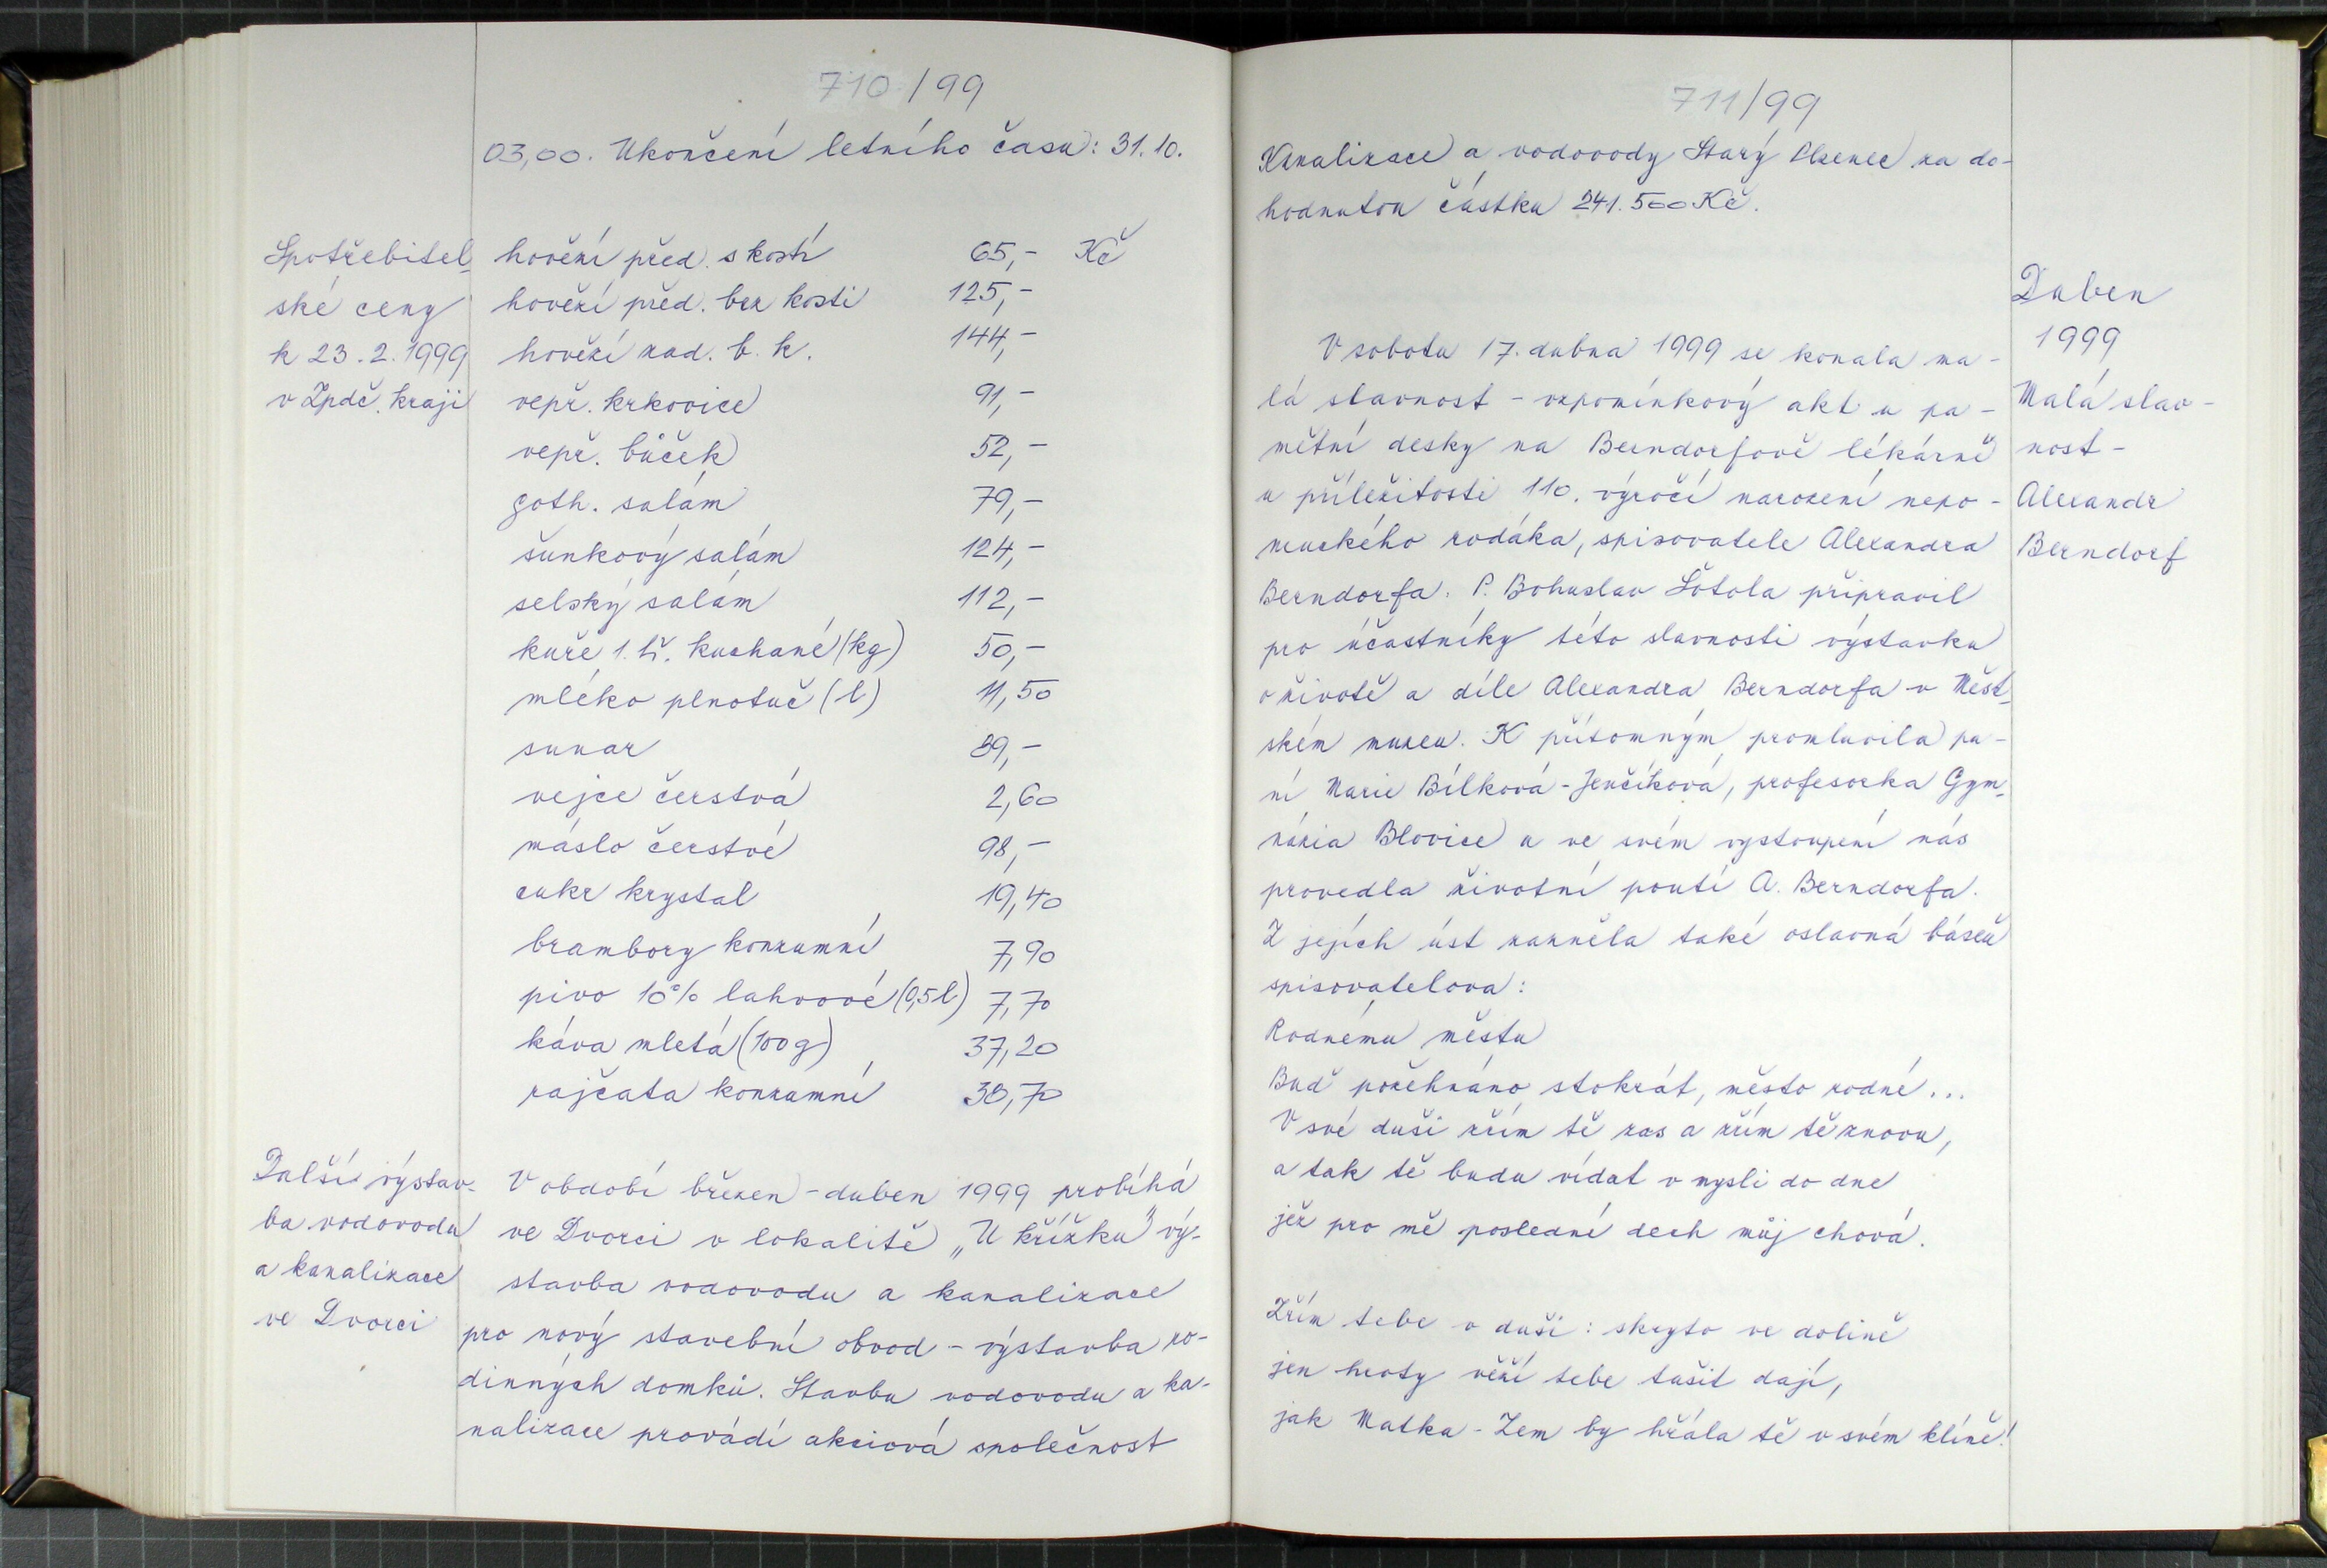 710/99
03,00. Ukončení letního času: 31.10.
Spotřebitel-
ské ceny
k 23.2.1999
v Zpdč. kraji
hovězí před. s kostí 65,- Kč
hovězí před. bez kosti 125,-
hovězí zad. b. k. 144,-
vepř. krkovice 91,-
vepř. bůček 52,-
goth. salám 79,-
šunkový salám 124,-
selský salám 112,-
kuře 1. tř. kuchané (kg) 50,-
mléko plnotuč (l) 11,50
sunar 89,-
vejce čerstvá 2,60
máslo čerstvé 98,-
cukr krystal 19,40
brambory konzumní 7,90
pivo 10% lahvové (0,5l) 7,70
káva mletá (100g) 37,20
rajčata konzumní 38,70
Další výstav-
ba vodovodu
a kanalizace
ve Dvorci
V období březen - duben 1999 probíhá
ve Dvorci v lokalitě „U křížku" vý-
stavba vodovodu a kanalizace
pro nový stavební obvod - výstavba ro-
dinných domků. Stavbu vodovodu a ka-
nalizace provádí akciová společnost
711/99
Kanalizace a vodovody Starý Plzenec za do-
hodnutou částku 241.500 Kč.
Duben
1999
Malá slav-
nost -
Alexandr
Berndorf
V sobotu 17. dubna 1999 se konala ma-
lá slavnost - vzpomínkový akt u pa-
mětní desky na Berndorfově lékárně
u příležitosti 110. výročí narození nepo-
muckého rodáka, spisovatele Alexandra
Berndorfa. P. Bohuslav Šotola připravil
pro účastníky této slavnosti výstavku
o životě a díle Alexandra Berndorfa v Měst-
ském muzeu. K přítomným promluvila pa-
ní Marie Bílková - Jenčíková, profesorka Gym-
názia Blovice a ve svém vystoupení nás
provedla životní poutí A. Berndorfa.
Z jejích úst zazněla také oslavná báseň
spisovatelova:
Rodnému městu
Buď požehnáno stokrát, město rodné...
V své duši zřím tě zas a zřím tě znovu,
a tak tě budu vídat v mysli do dne
jež pro mě poslední dech můj chová.
Zřím tebe v duši: skryto ve dolině
jen hroty věží tebe tušit dají,
jak Matka - Zem by hřála tě v svém klíně!